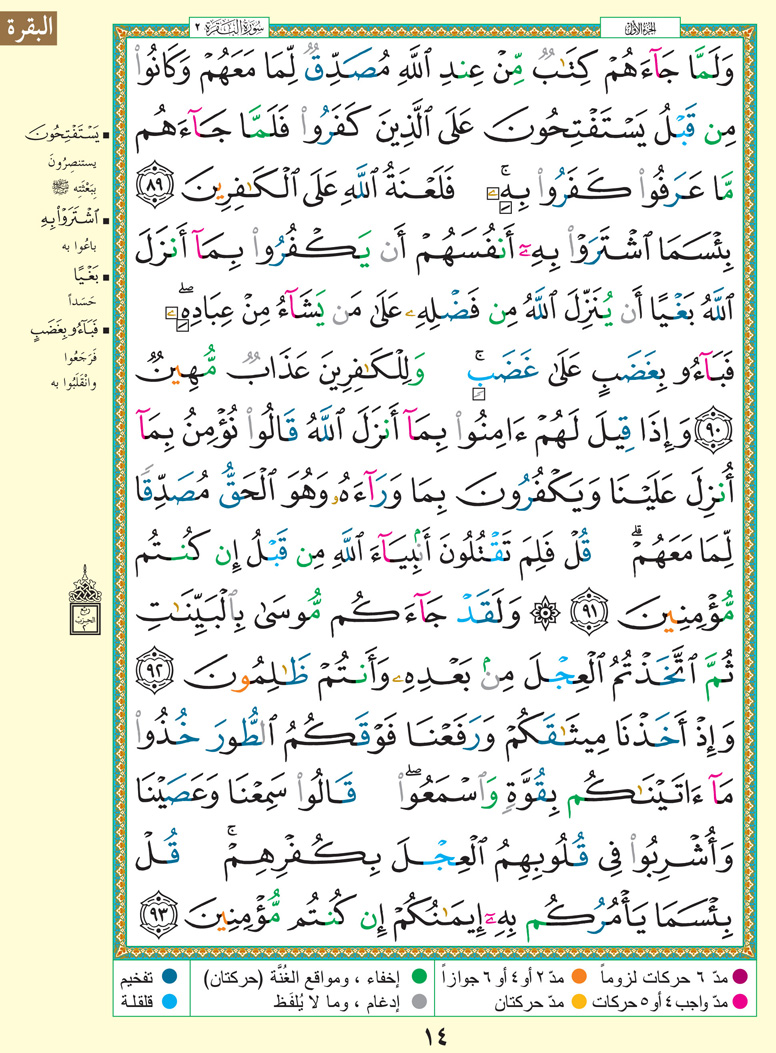 البقرة
سُورَةُ البَقَرَةِ ٢
الجزء الأول
وَلَمَّا جَآءَهُمْ كِتَـٰبٌ مِّنْ عِندِ ٱللَّهِ مُصَدِّقٌ لِّمَا مَعَهُمْ وَكَانُوا۟
مِن قَبْلُ يَسْتَفْتِحُونَ عَلَى ٱلَّذِينَ كَفَرُوا۟ فَلَمَّا جَآءَهُم
مَّا عَرَفُوا۟ كَفَرُوا۟ بِهِۦۚ فَلَعْنَةُ ٱللَّهِ عَلَى ٱلْكَـٰفِرِينَ ٨٩
بِئْسَمَا ٱشْتَرَوْا۟ بِهِۦٓ أَنفُسَهُمْ أَن يَكْفُرُوا۟ بِمَآ أَنزَلَ
ٱللَّهُ بَغْيًا أَن يُنَزِّلَ ٱللَّهُ مِن فَضْلِهِۦ عَلَىٰ مَن يَشَآءُ مِنْ عِبَادِهِۦۖ
فَبَآءُو بِغَضَبٍ عَلَىٰ غَضَبٍۚ وَلِلْكَـٰفِرِينَ عَذَابٌ مُّهِينٌ
٩٠ وَإِذَا قِيلَ لَهُمْ ءَامِنُوا۟ بِمَآ أَنزَلَ ٱللَّهُ قَالُوا۟ نُؤْمِنُ بِمَآ
أُنزِلَ عَلَيْنَا وَيَكْفُرُونَ بِمَا وَرَآءَهُۥ وَهُوَ ٱلْحَقُّ مُصَدِّقًا
لِّمَا مَعَهُمْۗ قُلْ فَلِمَ تَقْتُلُونَ أَنۢبِيَآءَ ٱللَّهِ مِن قَبْلُ إِن كُنتُم
مُّؤْمِنِينَ ٩١ ۞ وَلَقَدْ جَآءَكُم مُّوسَىٰ بِٱلْبَيِّنَـٰتِ
ثُمَّ ٱتَّخَذْتُمُ ٱلْعِجْلَ مِنۢ بَعْدِهِۦ وَأَنتُمْ ظَـٰلِمُونَ ٩٢
وَإِذْ أَخَذْنَا مِيثَـٰقَكُمْ وَرَفَعْنَا فَوْقَكُمُ ٱلطُّورَ خُذُوا۟
مَآ ءَاتَيْنَـٰكُم بِقُوَّةٍ وَٱسْمَعُوا۟ۖ قَالُوا۟ سَمِعْنَا وَعَصَيْنَا
وَأُشْرِبُوا۟ فِى قُلُوبِهِمُ ٱلْعِجْلَ بِكُفْرِهِمْۚ قُلْ
بِئْسَمَا يَأْمُرُكُم بِهِۦٓ إِيمَـٰنُكُمْ إِن كُنتُم مُّؤْمِنِينَ ٩٣
يَسْتَفْتِحُونَ
يستنصِرُونَ
بِبَعْثَتِه ﷺ
ٱشْتَرَوْا۟ بِهِ
باعُوا به
بَغْيًا
حَسَداً
فَبَآءُو بِغَضَبٍ
فَرَجَعُوا
وانْقَلَبُوا به
ربع
الحزب
٢
مدّ ٦ حركات لزوماً
مدّ ٢ أو ٤ أو ٦ جوازاً
إخفاء ، ومواقع الغُنَّة (حركتان)
تفخيم
مدّ واجب ٤ أو ٥ حركات
مدّ حركتان
إدغام ، وما لا يُلفَظ
قلقلة
١٤